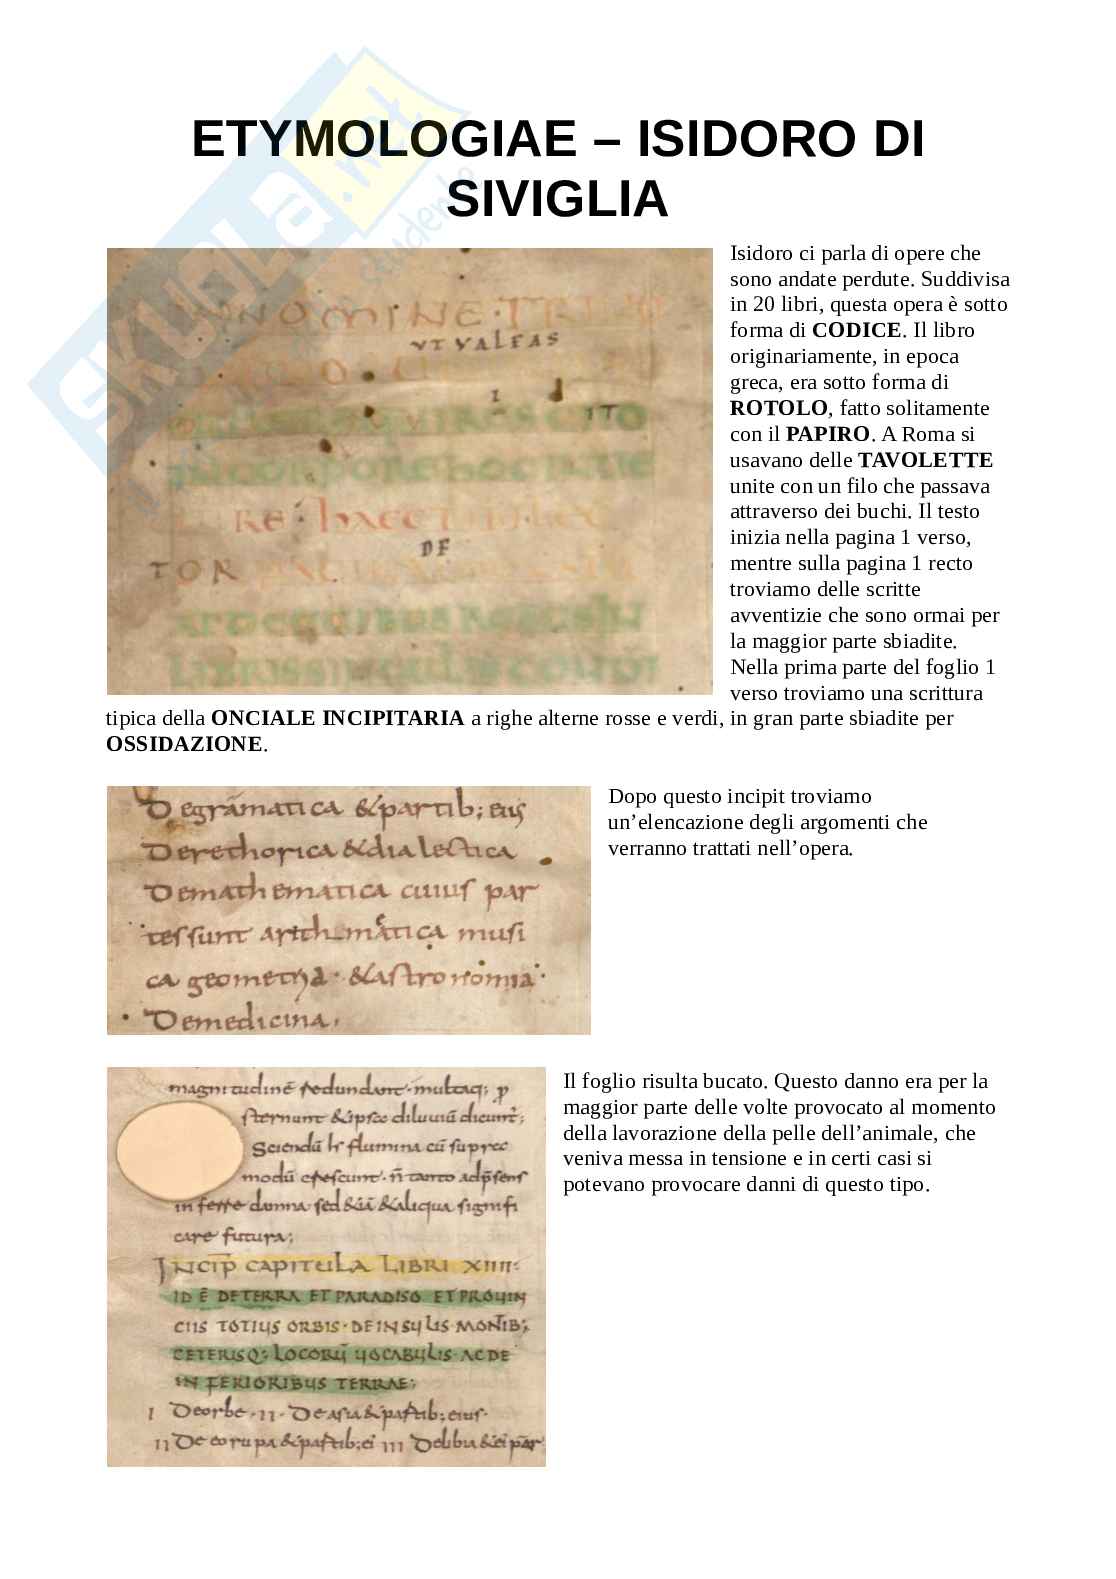 ETYMOLOGIAE – ISIDORO DI
SIVIGLIA
SKUOLA.net
Isidoro ci parla di opere che
sono andate perdute. Suddivisa
in 20 libri, questa opera è sotto
forma di CODICE. Il libro
originariamente, in epoca
greca, era sotto forma di
ROTOLO, fatto solitamente
con il PAPIRO. A Roma si
usavano delle TAVOLETTE
unite con un filo che passava
attraverso dei buchi. Il testo
inizia nella pagina 1 verso,
mentre sulla pagina 1 recto
troviamo delle scritte
avventizie che sono ormai per
la maggior parte sbiadite.
Nella prima parte del foglio 1
verso troviamo una scrittura
tipica della ONCIALE INCIPITARIA a righe alterne rosse e verdi, in gran parte sbiadite per
OSSIDAZIONE.
NOMINE
UT VALEAS
DE
TOR
Degrāmatica & partib; eius
Derethorica & dialectica
Demathematica cuius par
tessunt arithmetica musi
ca geometria · & astronomia
Demedicina
Dopo questo incipit troviamo
un’elencazione degli argomenti che
verranno trattati nell’opera.
magnitudinē redundant · multaq; p
sternunt & ipsae diluuiū dicunt;
Sciendū flumina cū supra
modū crescunt · tanto adpsens
inferre damna sed & aliqua signifi
care futura;
INCIP CAPITULA LIBRI XIIII
ID Ē DE TERRA ET PARADISO ET PROUIN
CIIS TOTIUS ORBIS · DE INSULIS MONTIB;
CETERISQ; LOCORŪ UOCABULIS AC DE
INFERIORIBUS TERRAE;
I De orbe · II · De asia & partib; eius ·
II De europa & partib; ei III De libia & ei par
Il foglio risulta bucato. Questo danno era per la
maggior parte delle volte provocato al momento
della lavorazione della pelle dell’animale, che
veniva messa in tensione e in certi casi si
potevano provocare danni di questo tipo.